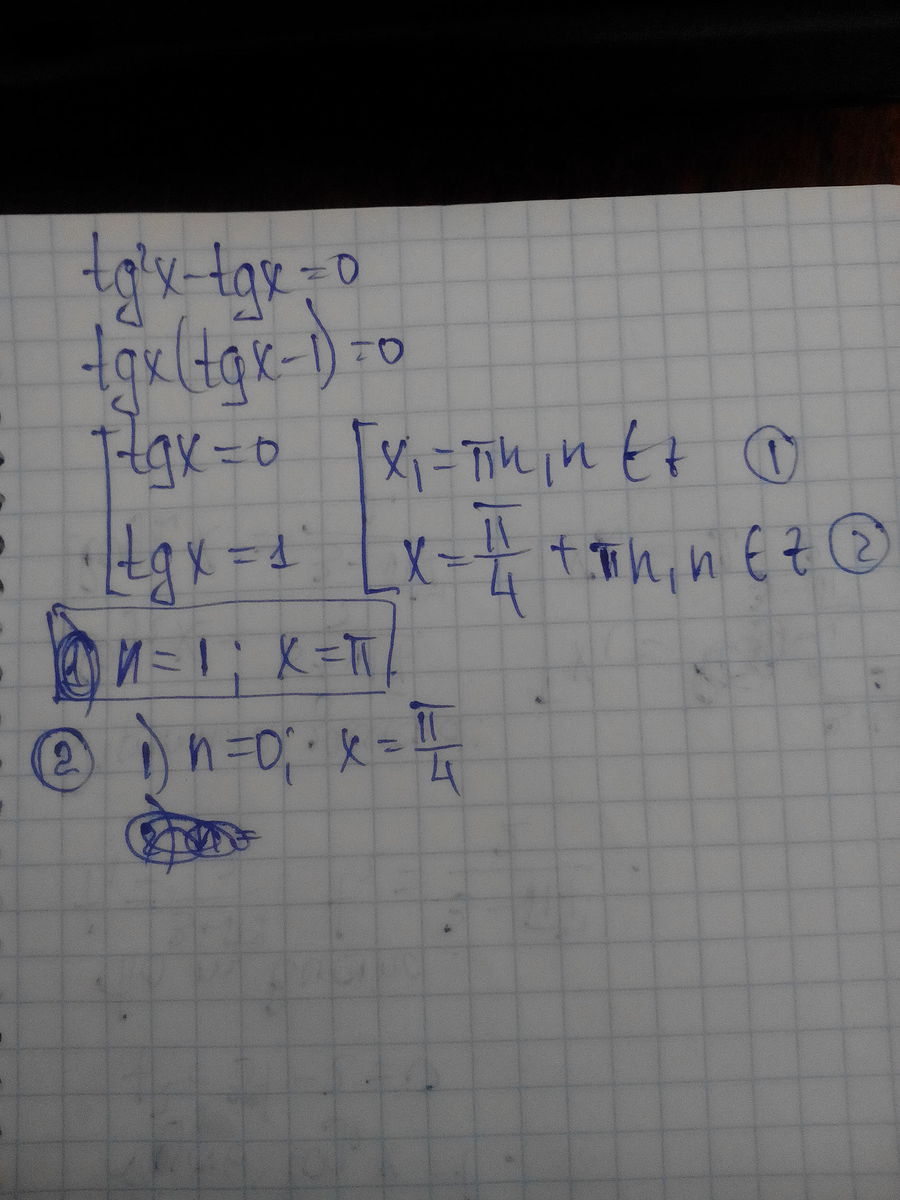 tg²x-tgx=0
tgx(tgx-1)=0
[tgx=0 [x₁=πn, n ∈ z ①
[tgx=1 [x=π/4+πn, n ∈ z ②
① n=1; x=π
② 1) n=0; x=π/4